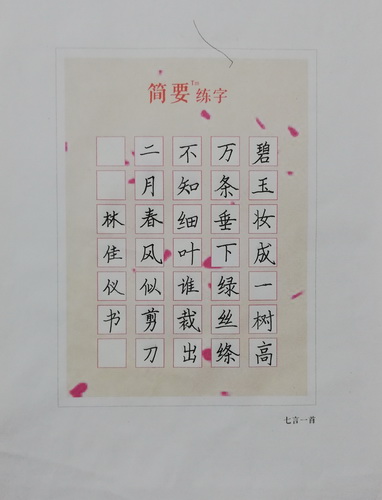 简要练字
Tm
碧玉妆成一树高
万条垂下绿丝绦
不知细叶谁裁出
二月春风似剪刀
林佳仪书
七言一首